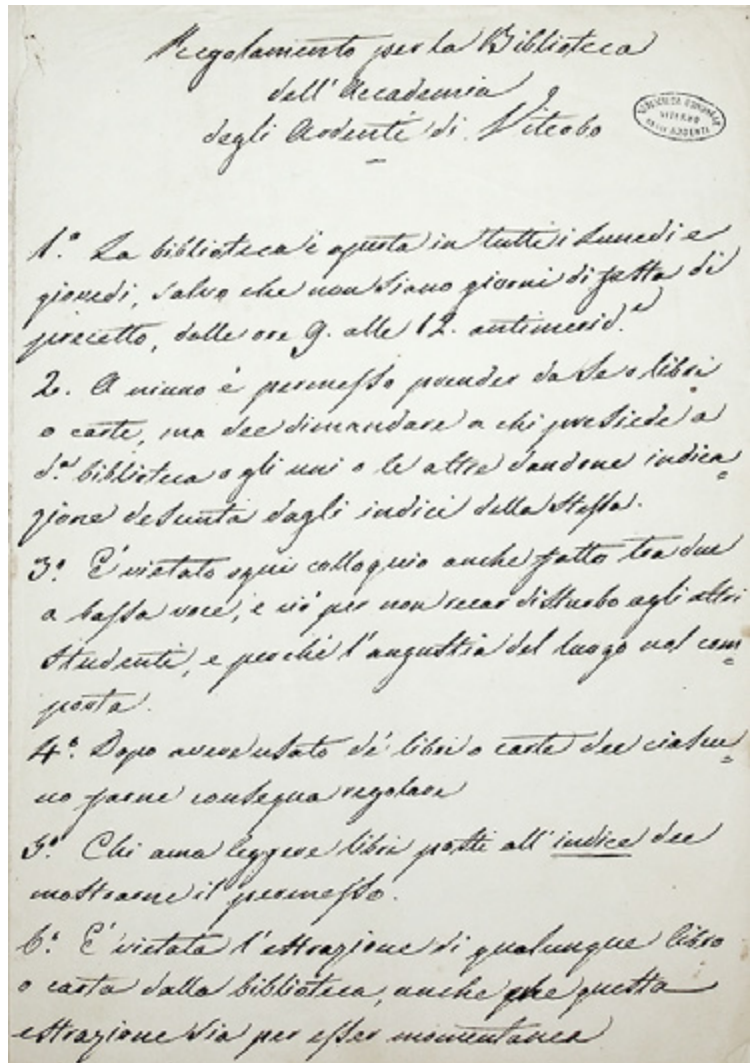 Regolamento per la Biblioteca
dell'Accademia
degli Ardenti di Viterbo
BIBLIOTECA COMUNALE
VITERBO
DEGLI ARDENTI
1.° La biblioteca è aperta in tutti i lunedì e
giovedì, salvo che non siano giorni di festa di
precetto, dalle ore 9. alle 12. antimerid.e
2. A niuno è permesso prender da se o libri
o carte, ma dee dimandare a chi presiede a
d.a biblioteca o gli uni o le altre dandone indica=
zione desunta dagli indici della stessa.
3.° È vietato ogni colloquio anche fatto tra due
a bassa voce, e ciò per non recar disturbo agli altri
studenti, e perché l'angustia del luogo nol com=
porta.
4.° Dopo avere usato de' libri o carte dee ciascu=
no farne consegna regolare
5.° Chi ama leggere libri posti all'indice dee
mostrarne il permesso.
6.° È vietata l'estrazione di qualunque libro
o carta dalla biblioteca, anche che questa
estrazione sia per esser momentanea